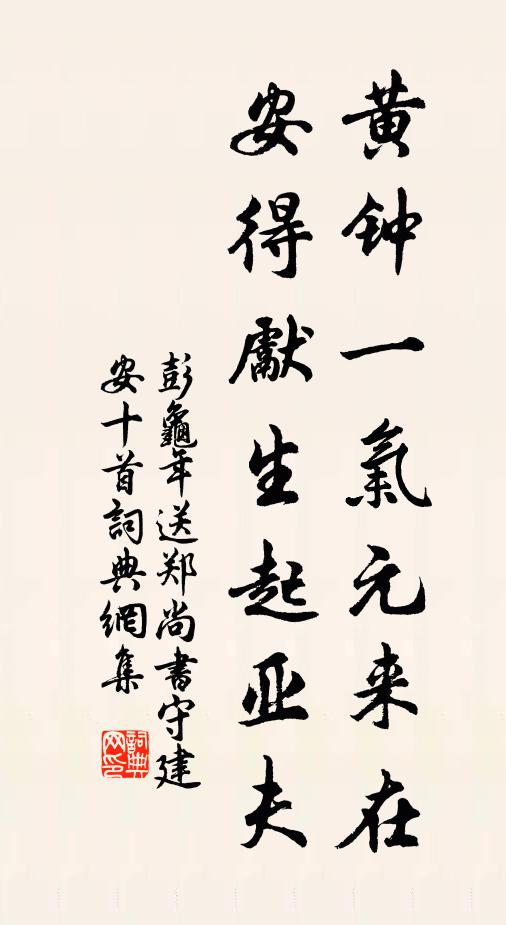 黄钟一氣元来在
安得獻生起亚夫
彭龜年送郑尚書守建
安十首詞典網集
詞典
网印